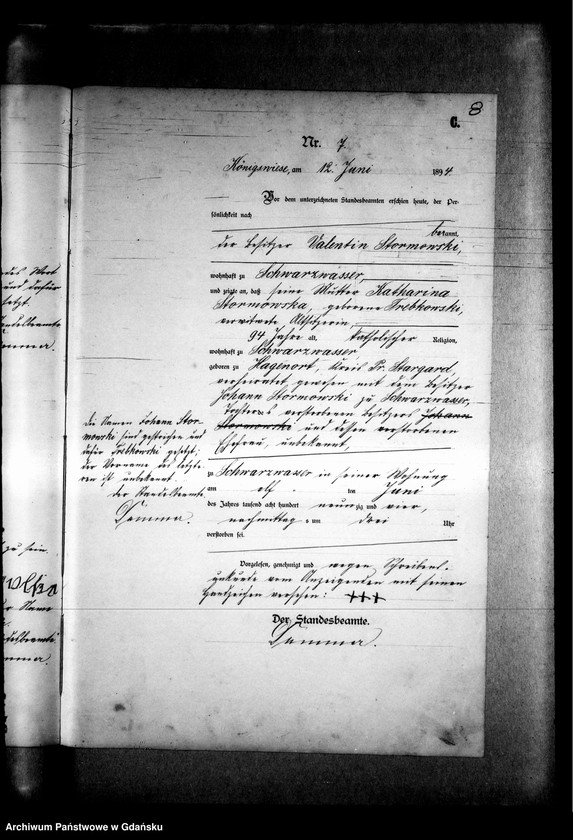 8
C.
Nr. 7.
Königswiese, am 12. Juni 1894.
Vor dem unterzeichneten Standesbeamten erschien heute, der Per-
sönlichkeit nach
bekannt,
der Besitzer Valentin Stormowski,
wohnhaft zu Schwarzwasser,
und zeigte an, daß seine Mutter Katharina
Stormowska, geborene Trebkowski,
verwitwete Altsitzerin,
94 Jahre alt, katholischer Religion,
wohnhaft zu Schwarzwasser
geboren zu Hagenort, Kreis Pr. Stargard,
verheiratet gewesen mit dem Besitzer
Johann Stormowski zu Schwarzwasser,
Tochter des verstorbenen Besitzers Johann
Stormowski und dessen verstorbenen
Ehefrau, unbekannt,
zu Schwarzwasser in seiner Wohnung
am elf ten Juni
des Jahres tausend acht hundert neunzig und vier,
nachmittags um drei Uhr
verstorben sei.
Vorgelesen, genehmigt und wegen Schreibens-
unkunde vom Anzeigenden mit seinen
Handzeichen versehen: +++
Der Standesbeamte.
Die Namen Johann Stor-
mowski sind gestrichen und
dafür Trebkowski gesetzt;
der Vorname des letzte-
ren ist unbekannt.
der Standesbeamte.
Archiwum Państwowe w Gdańsku